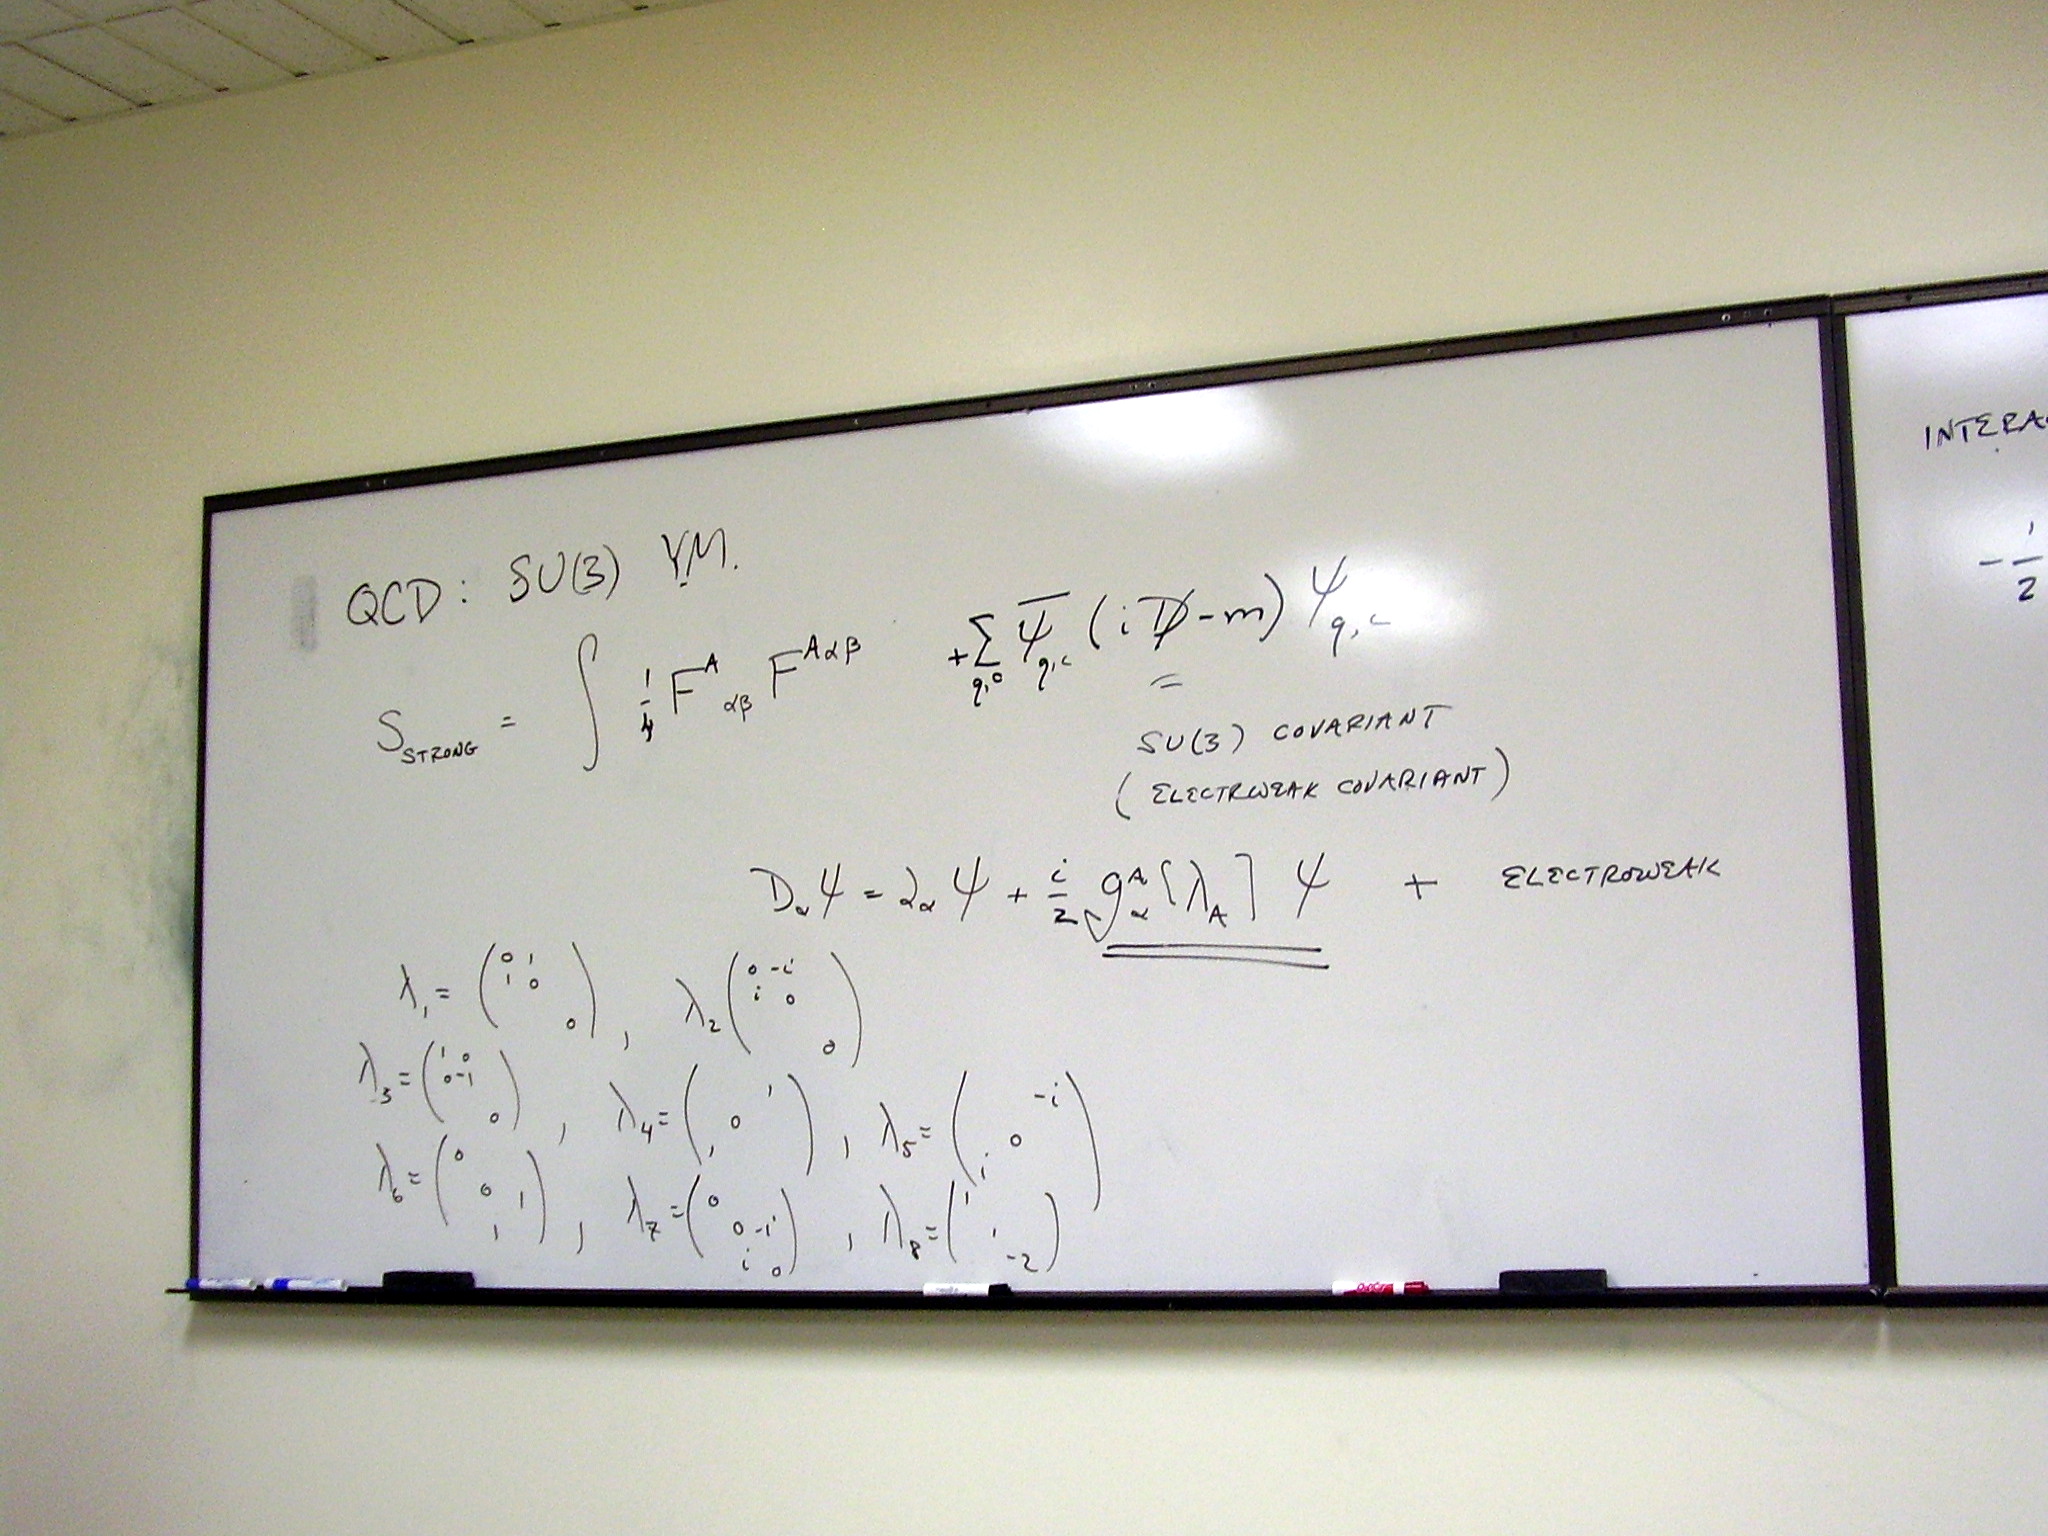 QCD: SU(3) Y.M.
S_STRONG = ∫ 1/4 F^A_αβ F^Aαβ + Σ_q,c ψ̄_q,c (i D̸ - m) ψ_q,c
=
SU(3) COVARIANT
(ELECTRWEAK COVARIANT)
D_α ψ = ∂_α ψ + i/2 g^A_α [λ_A] ψ + ELECTROWEAK
λ_1 = (0 1 / 1 0 / 0), λ_2 (0 -i / i 0 / 0)
λ_3 = (1 0 / 0 -1 / 0), λ_4 = (1 / 0 / 1), λ_5 = (-i / 0 / i)
λ_6 = (0 / 0 1 / 1), λ_7 = (0 / 0 -i / i 0), λ_8 = (1 / 1 / -2)
INTERA
- 1/2